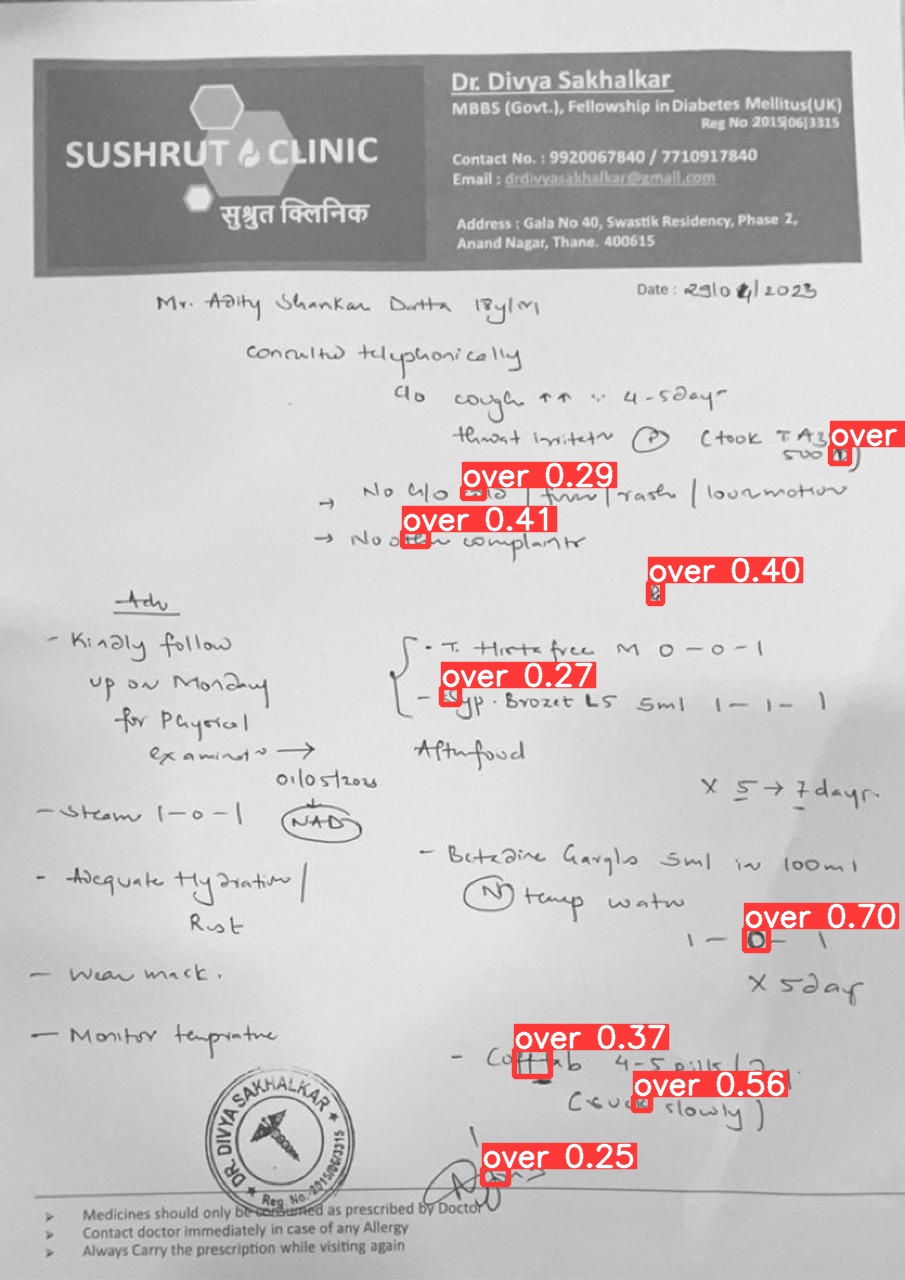 SUSHRUT CLINIC
सुश्रुत क्लिनिक
Dr. Divya Sakhalkar
MBBS (Govt.), Fellowship in Diabetes Mellitus(UK)
Reg No 2015|06|3315
Contact No. : 9920067840 / 7710917840
Email : drdivyasakhalkar@gmail.com
Address : Gala No 40, Swastik Residency, Phase 2,
Anand Nagar, Thane. 400615
Date : 29/04/2023
Mr. Adity Shankar Dutta 18y/m
Consulted telephonically
c/o cough ↑↑ 4-5 days
throat irritatn (P) (took T A3
500
over
→ No c/o / / rash / loosemotion
over 0.29
→ No other complaints
over 0.41
over 0.40
Adv
- Kindly follow
up on Monday
for Physical
examinatn →
01/05/2023
NAD
- Steam 1-0-1
- Adequate Hydration /
Rest
- Wear mask.
- Monitor temprature
- T. M 0-0-1
over 0.27
- Syp. Brozet LS 5ml 1-1-1
After food
x 5 → 7 days.
- Betadine Gargls 5ml in 100ml
(N) temp water
over 0.70
1-0-1
x 5 day
over 0.37
- 4-5 pills /
over 0.56
(suck slowly)
over 0.25
DR. DIVYA SAKHALKAR
Reg. No.-2015/06/3315
Medicines should only be consumed as prescribed by Doctor
Contact doctor immediately in case of any Allergy
Always Carry the prescription while visiting again